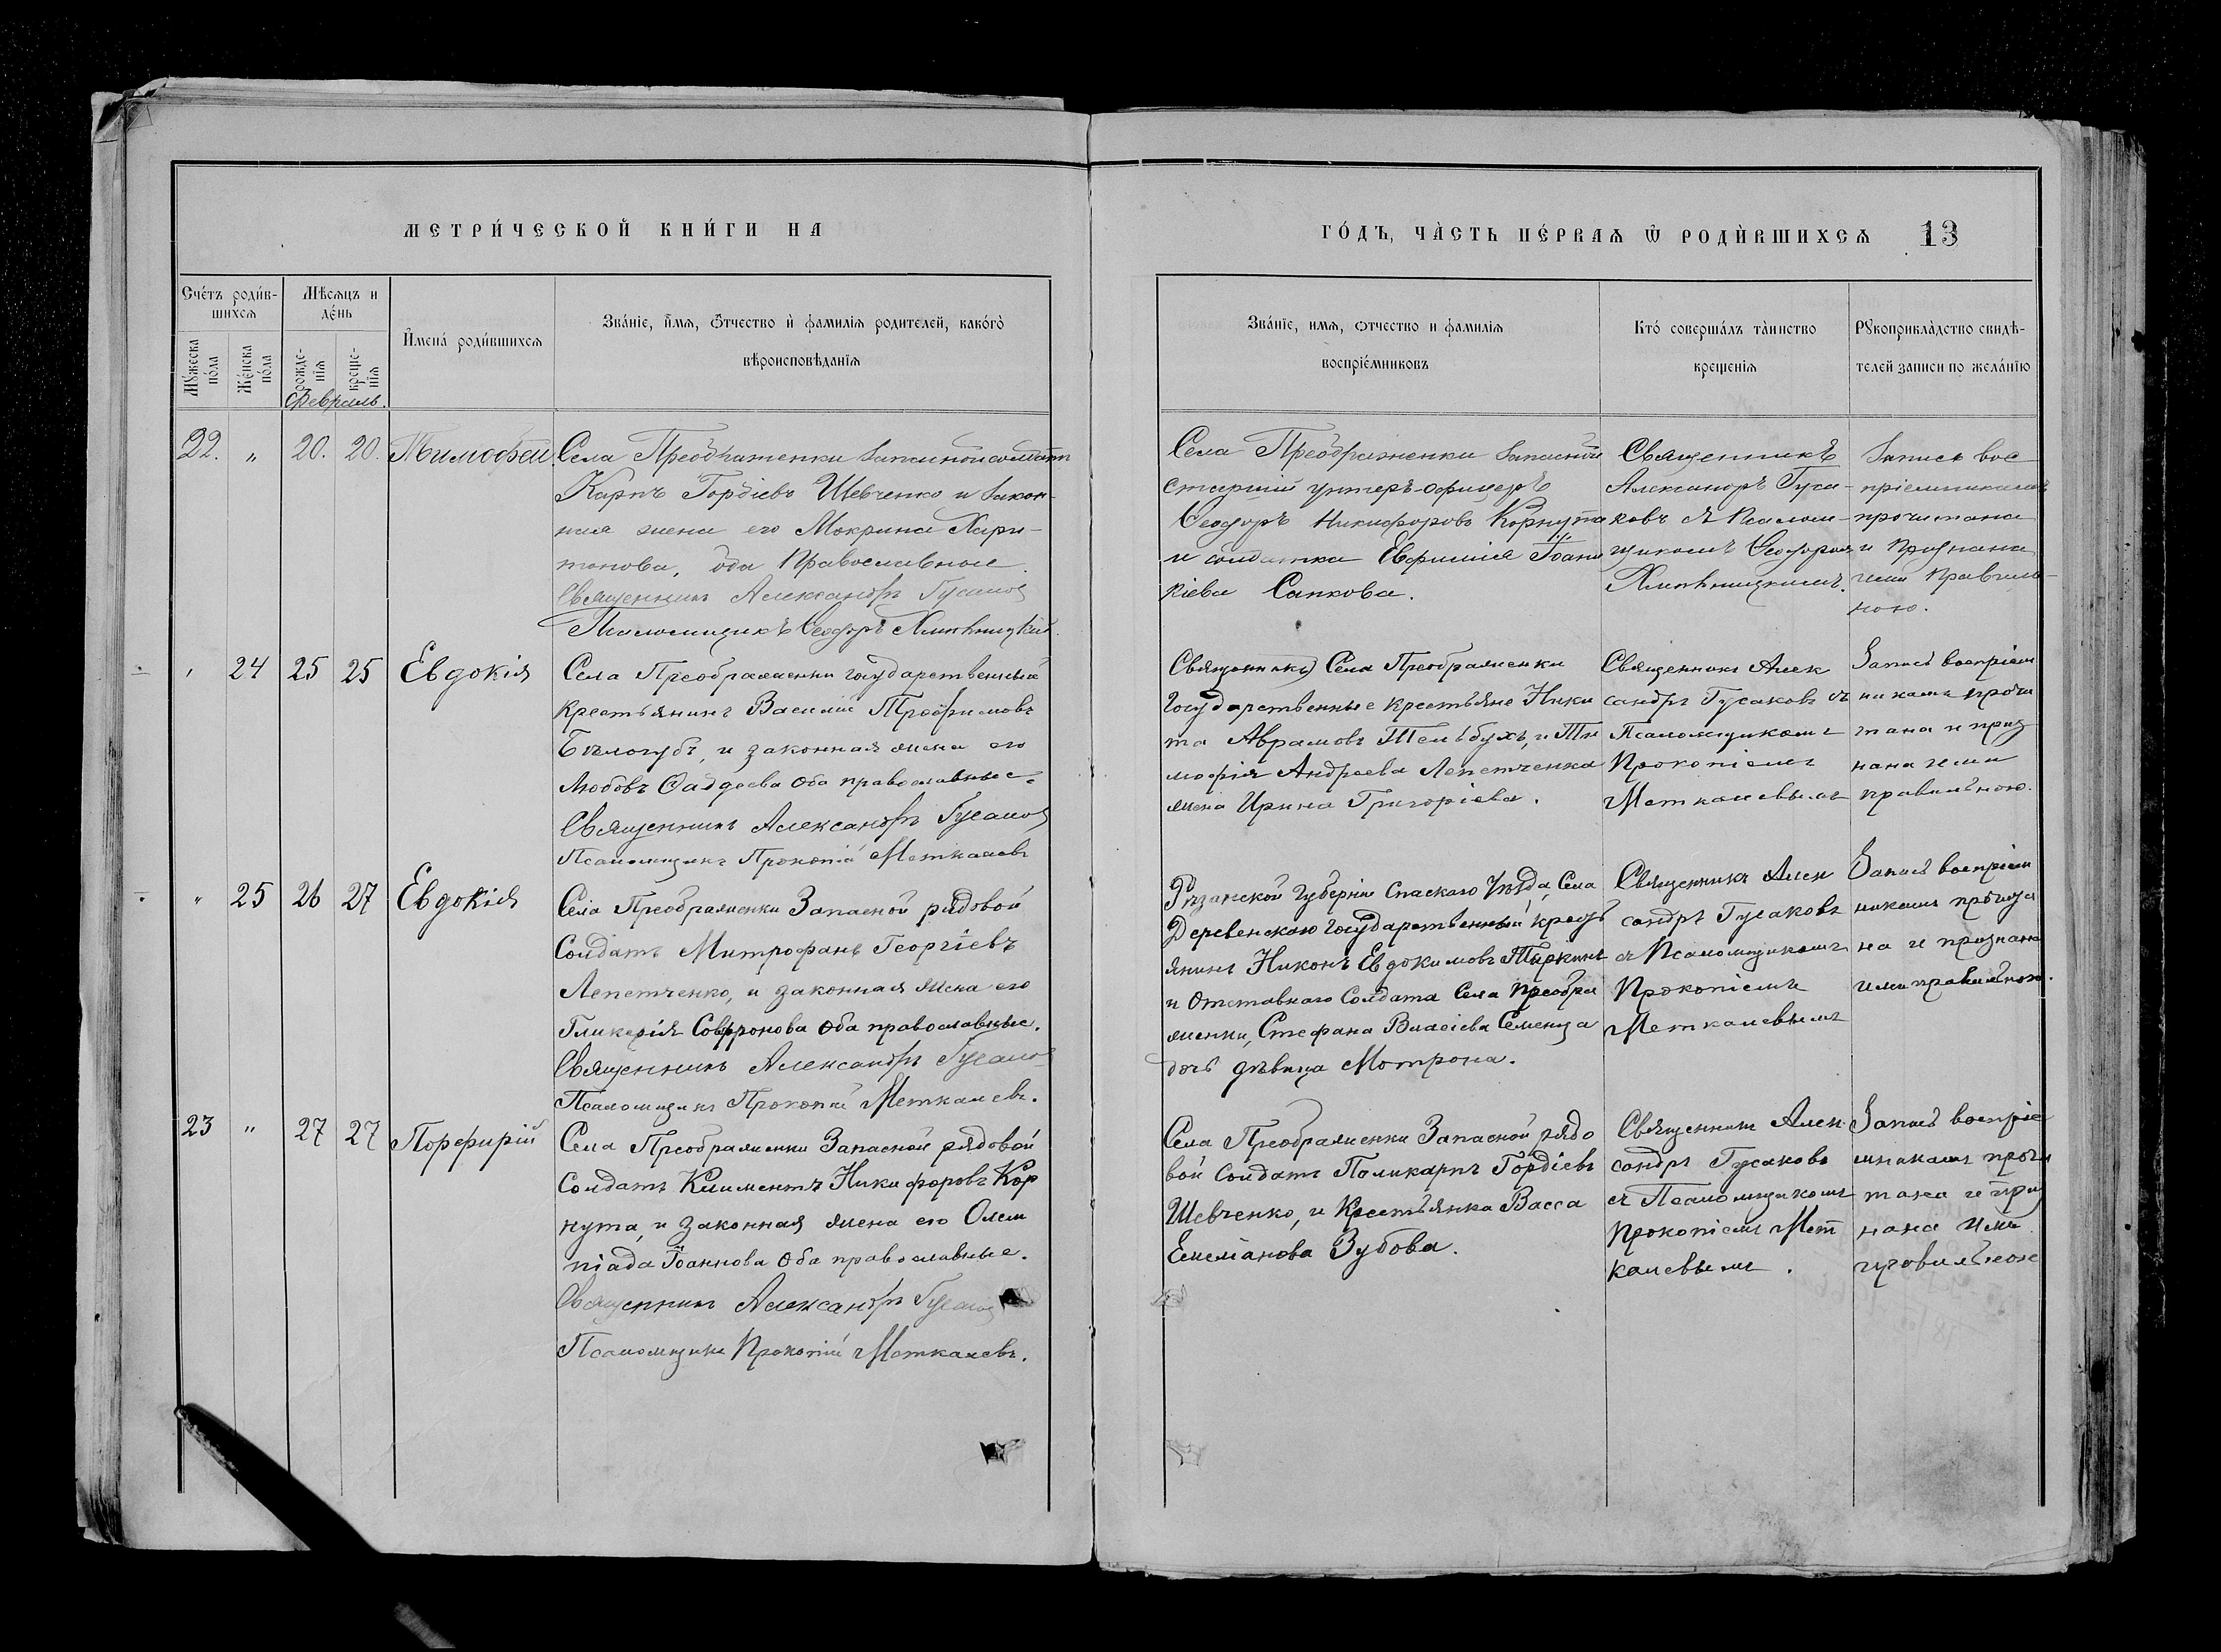 МЕТРИ́ЧЕСКОЙ КНИ́ГИ НА
ГО́ДЪ, ЧА̀СТЬ ПЕ́РВАѦ Ѡ҆ РОДЍВШИХСѦ 13
Сче́тъ роди́в-
шихсѧ
Мѣ́сѧцъ и
де́нь
Мꙋ́жеска
по́ла
Же́нска
по́ла
рожде-
нїѧ
креще-
нїѧ
И҆мена̀ роди́вшихсѧ
Зва́нїе, и҆́мѧ, ѻ҆́тчество и҆ фамилїѧ родителей, како́го
вѣроисповѣ́данїѧ
Зва́нїе, имѧ, ѻтчество и фамилїѧ
воспрїе́мниковъ
Кто́ соверша́лъ та̀инство
крещенїѧ
Рꙋкоприкла̀дство свидѣ́-
телей записи по жела́нїю
Февраль.
22. „ 20. 20. Тимофей.
Села Преображенки запасной солдатъ
Карпъ Гордіевъ Шевченко и закон-
ная жена его Мокрина Хари-
тонова, оба Православные.
Священникъ Александръ Гусаковъ
Псаломщикъ Ѳеодоръ
Села Преображенки запасной
старшій унтеръ-офицеръ
Ѳеодоръ Никифоровъ Корнута
и солдатка Евфимія Іоани
кіева Сапкова.
Священникъ
Александръ Гуса-
ковъ съ Псалом-
щикомъ Ѳеодоромъ
Запись вос
пріемникамъ
прочитана
и признана
ими правиль-
ною.
„ 24 25 25 Евдокія
Села Преображенки государственный
крестьянинъ Василій Трофимовъ
Бѣлогубъ, и законная жена его
Любовь Фаддеева оба православные.
Священникъ Александръ Гусаковъ
Псаломщикъ Прокопій Меткалевъ
Села Преображенки
Государственные крестьяне Ники
та Аврамовъ Тельбухъ, и Ти
мофія Андреева Лепетченка
жена Ирина Григоріева.
Священникъ Алек
сандръ Гусаковъ съ
Псаломщикомъ
Прокопіемъ
Меткалевымъ
Запись воспріем
никамъ прочи
тана и приз
нана ими
правильною.
„ 25 26 27 Евдокія
Села Преображенки Запасной рядовой
Солдатъ Митрофанъ Георгіевъ
Лепетченко, и законная жена его
Гликерія Софронова оба православные.
Священникъ Александръ Гусаковъ
Псаломщикъ Прокопій Меткалевъ.
Рязанской Губерніи Спаскаго Уѣзда, Села
Деревенскаго государственный кресть
янинъ Никонъ Евдокимовъ Тяркинъ
и Отставнаго Солдата Села Преобра
женки, Стефана Власіева Семенца
дочь дѣвица Мотрона.
Священникъ Алек
сандръ Гусаковъ
съ Псаломщикомъ
Прокопіемъ
Меткалевымъ
Запись воспріем
никамъ прочита
на и признана
ими правильною.
23 „ 27 27 Порфирій
Села Преображенки Запасной рядовой
Солдатъ Климентъ Никифоровъ Кор
нута, и законная жена его Олим
піада Іоаннова оба православные.
Священникъ Александръ Гусаковъ
Псаломщикъ Прокопій Меткалевъ.
Села Преображенки Запасной рядо
вой Солдатъ Поликарпъ Гордіевъ
Шевченко, и Крестьянка Васса
Емеліанова Зубова.
Священникъ Алек
сандръ Гусаковъ
съ Псаломщикомъ
Прокопіемъ Мет
калевымъ.
Запись воспріе
мникамъ прочи
тана и приз
нана ими
правильною